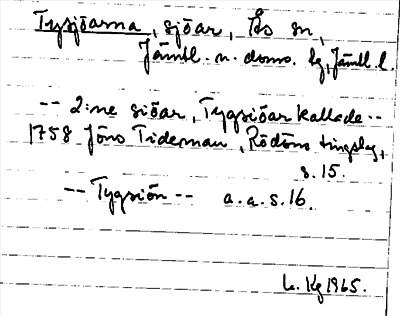 Tysjöarna, sjöar, Ås sn,
Jämtl. n. doms. bg, Jämtl. l.
-- 2:ne siöar, Tygsiöar kallade --
1758 Jöns Tideman, Rödöns tingslag,
s. 15.
-- Tygsiön -- a.a. s. 16.
Kg 1965.